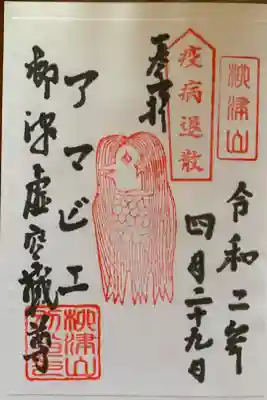 柳津山
疫病退散
令和二年
四月二十九日
奉拝
アマビエ
柳津虚空蔵尊
柳津山